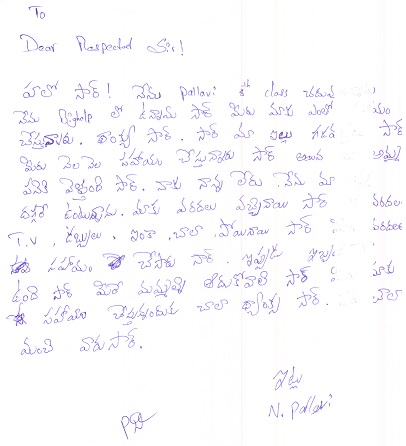 To
Dear Respected Sir!
హలో సార్! నేను Pallavi 8th class చదువు
నేను Righelp లో ఉన్నాము సార్ మీరు మాకు ఎంతో యం
చేస్తున్నారు. థాంక్స్ సార్. సార్ మా ఇల్లు గడవ సార్
మీరు నెల నెల సహాయం చేస్తున్నారు సార్ అమ్మ
పనికి వెళ్తుంది సార్. నాకు నాన్న లేరు. నేను మా
దగ్గరే ఉంటున్నాను. మాకు వరదలు వచ్చినాయి సార్ వరదల
T.V, డబ్బులు, ఇంకా చాలా పోయినాయి సార్ వరదల
సహాయం చేసారు సార్. ఇప్పుడు
ఉంది సార్ మీరే మమ్మల్ని ఆదుకోవాలి సార్ మాకు
సహాయం చేస్తున్నందుకు చాలా థ్యాంక్స సార్. చాలా
మంచి వారు సార్.
ఇట్లు
N. Pallavi